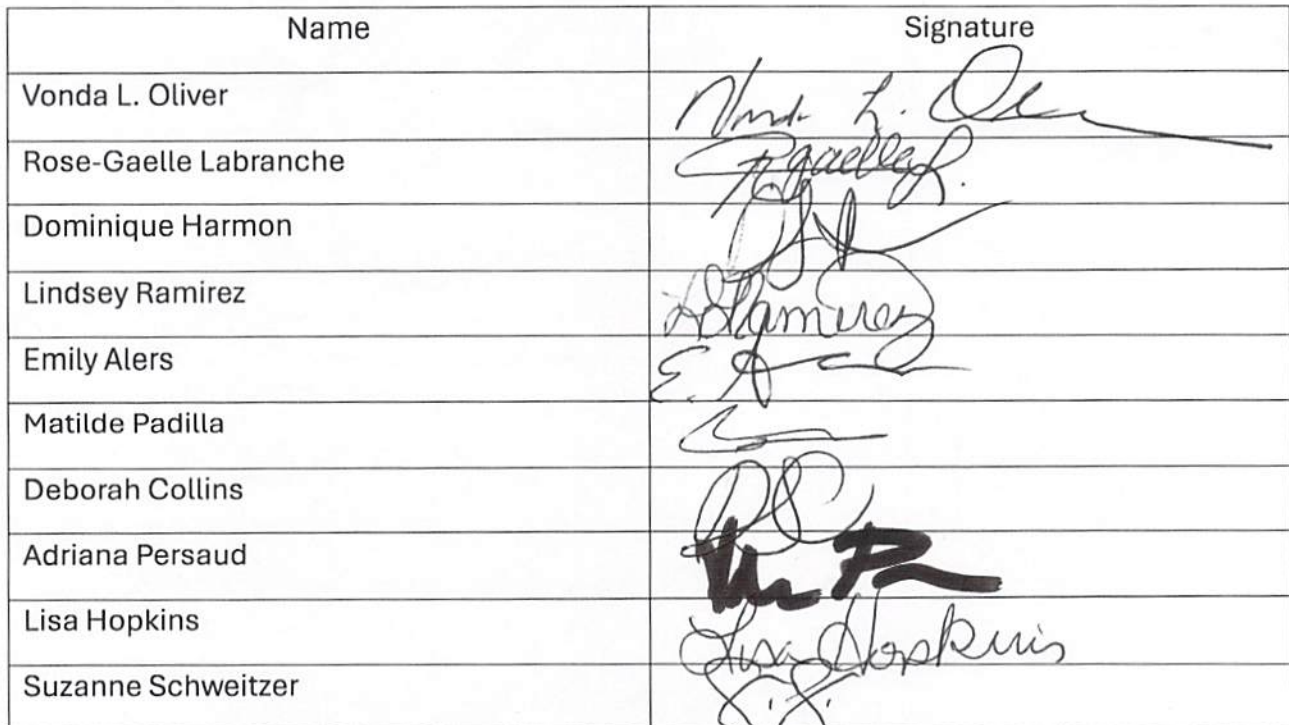 Name Signature
Vonda L. Oliver Vonda L. Oliver
Rose-Gaelle Labranche RgaelleL.
Dominique Harmon
Lindsey Ramirez LRamirez
Emily Alers E. A
Matilde Padilla
Deborah Collins DC
Adriana Persaud
Lisa Hopkins Lisa Hopkins
Suzanne Schweitzer S.S.